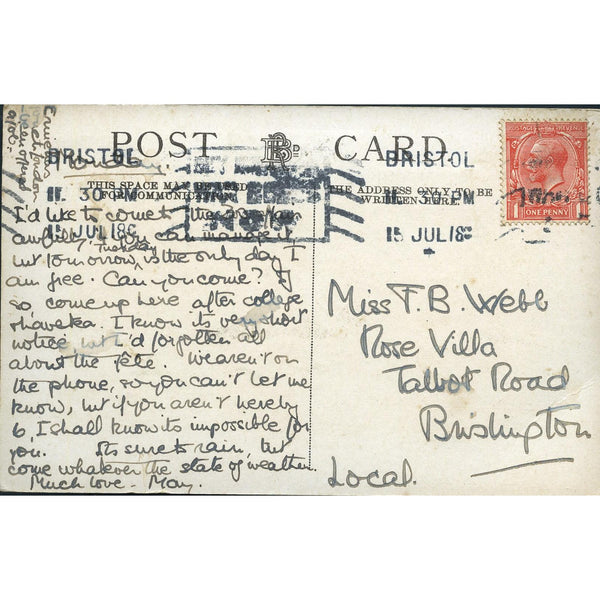 POST CARD
THIS SPACE MAY BE USED
FOR COMMUNICATION
THE ADDRESS ONLY TO BE
WRITTEN HERE
BRISTOL
11. 30 PM
15 JUL 18
BRISTOL
11. 30 PM
15 JUL 18
POSTAGE REVENUE
ONE PENNY
I'd like to come to the
awfully, if you can manage it
but tomorrow, Tuesday is the only day I
am free. Can you come? If
so come up here after college
& have tea. I know its very short
notice, but I'd forgotten all
about the fête. We aren't on
the phone, so you can't let me
know, but if you aren't here by
6, I shall know its impossible for
you. Its sure to rain, but
come whatever the state of weather.
Much love - May.
Miss F. B. Webb
Rose Villa
Talbot Road
Brislington
Local.